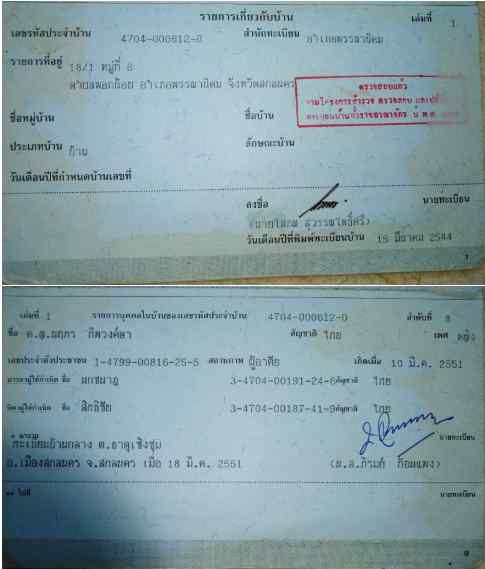 รายการเกี่ยวกับบ้าน เล่มที่ 1
เลขรหัสประจำบ้าน 4704-000612-0 สำนักทะเบียน อำเภอพรรณานิคม
รายการที่อยู่ 18/1 หมู่ที่ 8
ตำบลพอกน้อย อำเภอพรรณานิคม จังหวัดสกลนคร
ตรวจสอบแล้ว
ตามโครงการสำรวจ ตรวจสอบ
ทะเบียนบ้านทั่วราชอาณาจักร
ชื่อหมู่บ้าน ชื่อบ้าน
ประเภทบ้าน บ้าน ลักษณะบ้าน
วันเดือนปีที่กำหนดบ้านเลขที่
ลงชื่อ นายทะเบียน
วันเดือนปีที่พิมพ์ทะเบียนบ้าน 15 มีนาคม 2544
1
เล่มที่ 1 รายการบุคคลในบ้านของเลขรหัสประจำบ้าน 4704-000612-0 ลำดับที่ 8
ชื่อ ด.ญ. สัญชาติ ไทย เพศ หญิง
เลขประจำตัวประชาชน 1-4799-00816-25-5 สถานภาพ ผู้อาศัย เกิดเมื่อ 10 มี.ค. 2551
มารดาผู้ให้กำเนิด ชื่อ 3-4704-00191-24-6 สัญชาติ ไทย
บิดาผู้ให้กำเนิด ชื่อ 3-4704-00187-41-9 สัญชาติ ไทย
* มาจาก นายทะเบียน
ทะเบียนบ้านกลาง ต.ธาตุเชิงชุม
อ.เมืองสกลนคร จ.สกลนคร เมื่อ 18 มี.ค. 2551
** ไปที่ นายทะเบียน